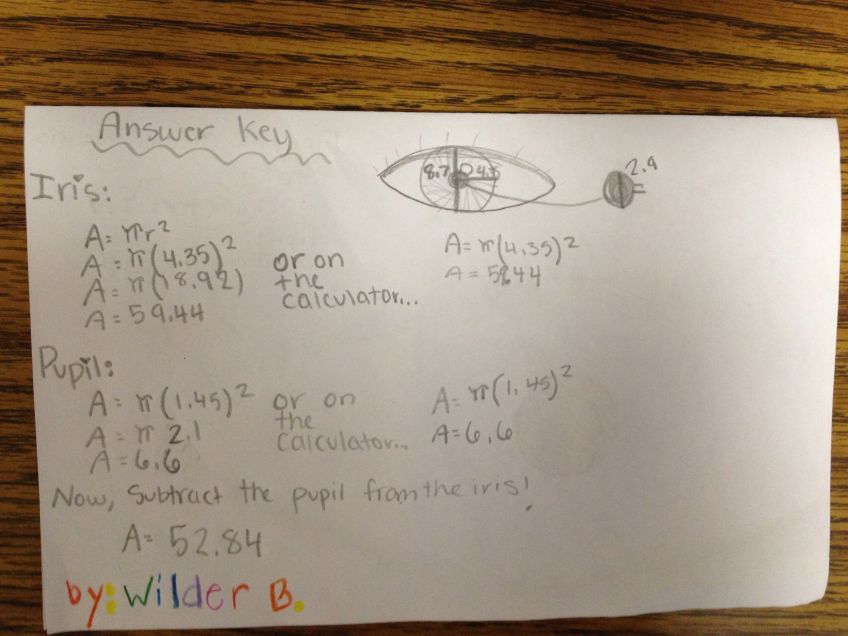 Answer Key
8.7
2.9
Iris:
A = πr²
A = π(4.35)²
A = π(18.92)
A = 59.44
or on
the
calculator...
A = π(4.35)²
Pupil:
A = π(1.45)²
A = π 2.1
A = 6.6
or on
the
calculator...
A = π(1.45)²
A = 6.6
Now, subtract the pupil from the iris!
A = 52.84
by: Wilder B.